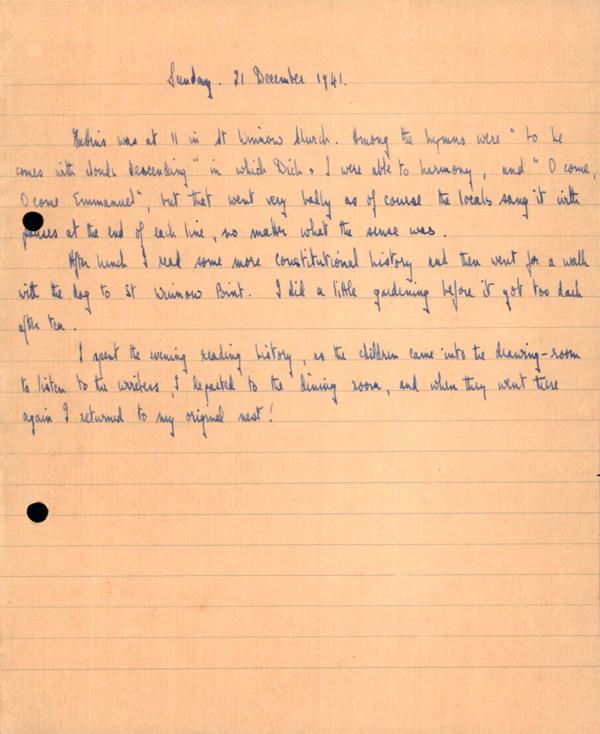 Sunday. 21 December 1941.
Mattins was at 11 in St Winnow Church. Among the hymns were "Lo he
comes with clouds descending" in which Dick & I were able to harmony, and "O come,
O come Emmanuel", but that went very badly as of course the locals sang it with
pauses at the end of each line, no matter what the sense was.
After lunch I read some more constitutional history and then went for a walk
with the dog to St Winnow Point. I did a little gardening before it got too dark
after tea.
I spent the evening reading history, as the children came into the drawing-room
to listen to the wireless, I departed to the dining room, and when they went there
again I returned to my original nest!